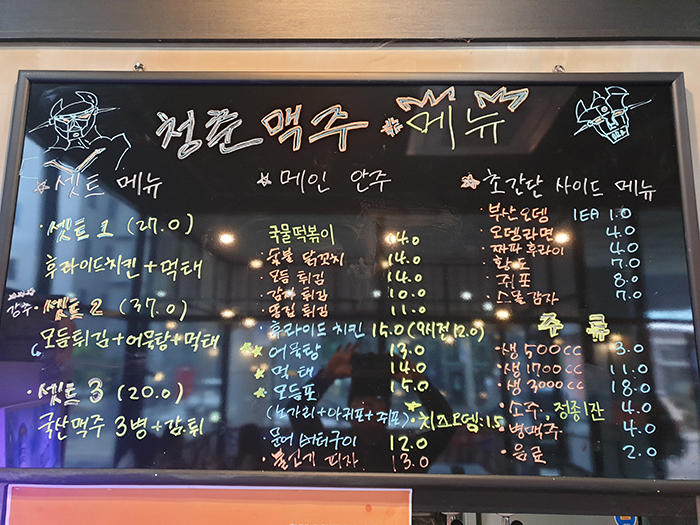 청춘맥주 메뉴
셋트 메뉴
셋트 1 (27.0)
후라이드치킨+먹태
강추 셋트 2 (37.0)
모듬튀김+어묵탕+먹태
셋트 3 (20.0)
국산맥주 3병+감튀
메인 안주
국물떡볶이 14.0
숯불 닭꼬치 14.0
모듬 튀김 14.0
감자 튀김 10.0
튀김 11.0
후라이드 치킨 15.0 (9시전 12.0)
어묵탕 13.0
먹태 14.0
모듬포 15.0
(노가리+아귀포+쥐포)
치즈오뎅 1.5
문어 버터구이 12.0
불고기 피자 13.0
초간단 사이드 메뉴
부산오뎅 1EA 1.0
오뎅라면 4.0
짜파후라이 4.0
황도 7.0
쥐포 8.0
스몰감자 7.0
주류
생 500cc 3.0
생 1700cc 11.0
생 3000cc 18.0
소주, 청종1잔 4.0
병맥주 4.0
음료 2.0